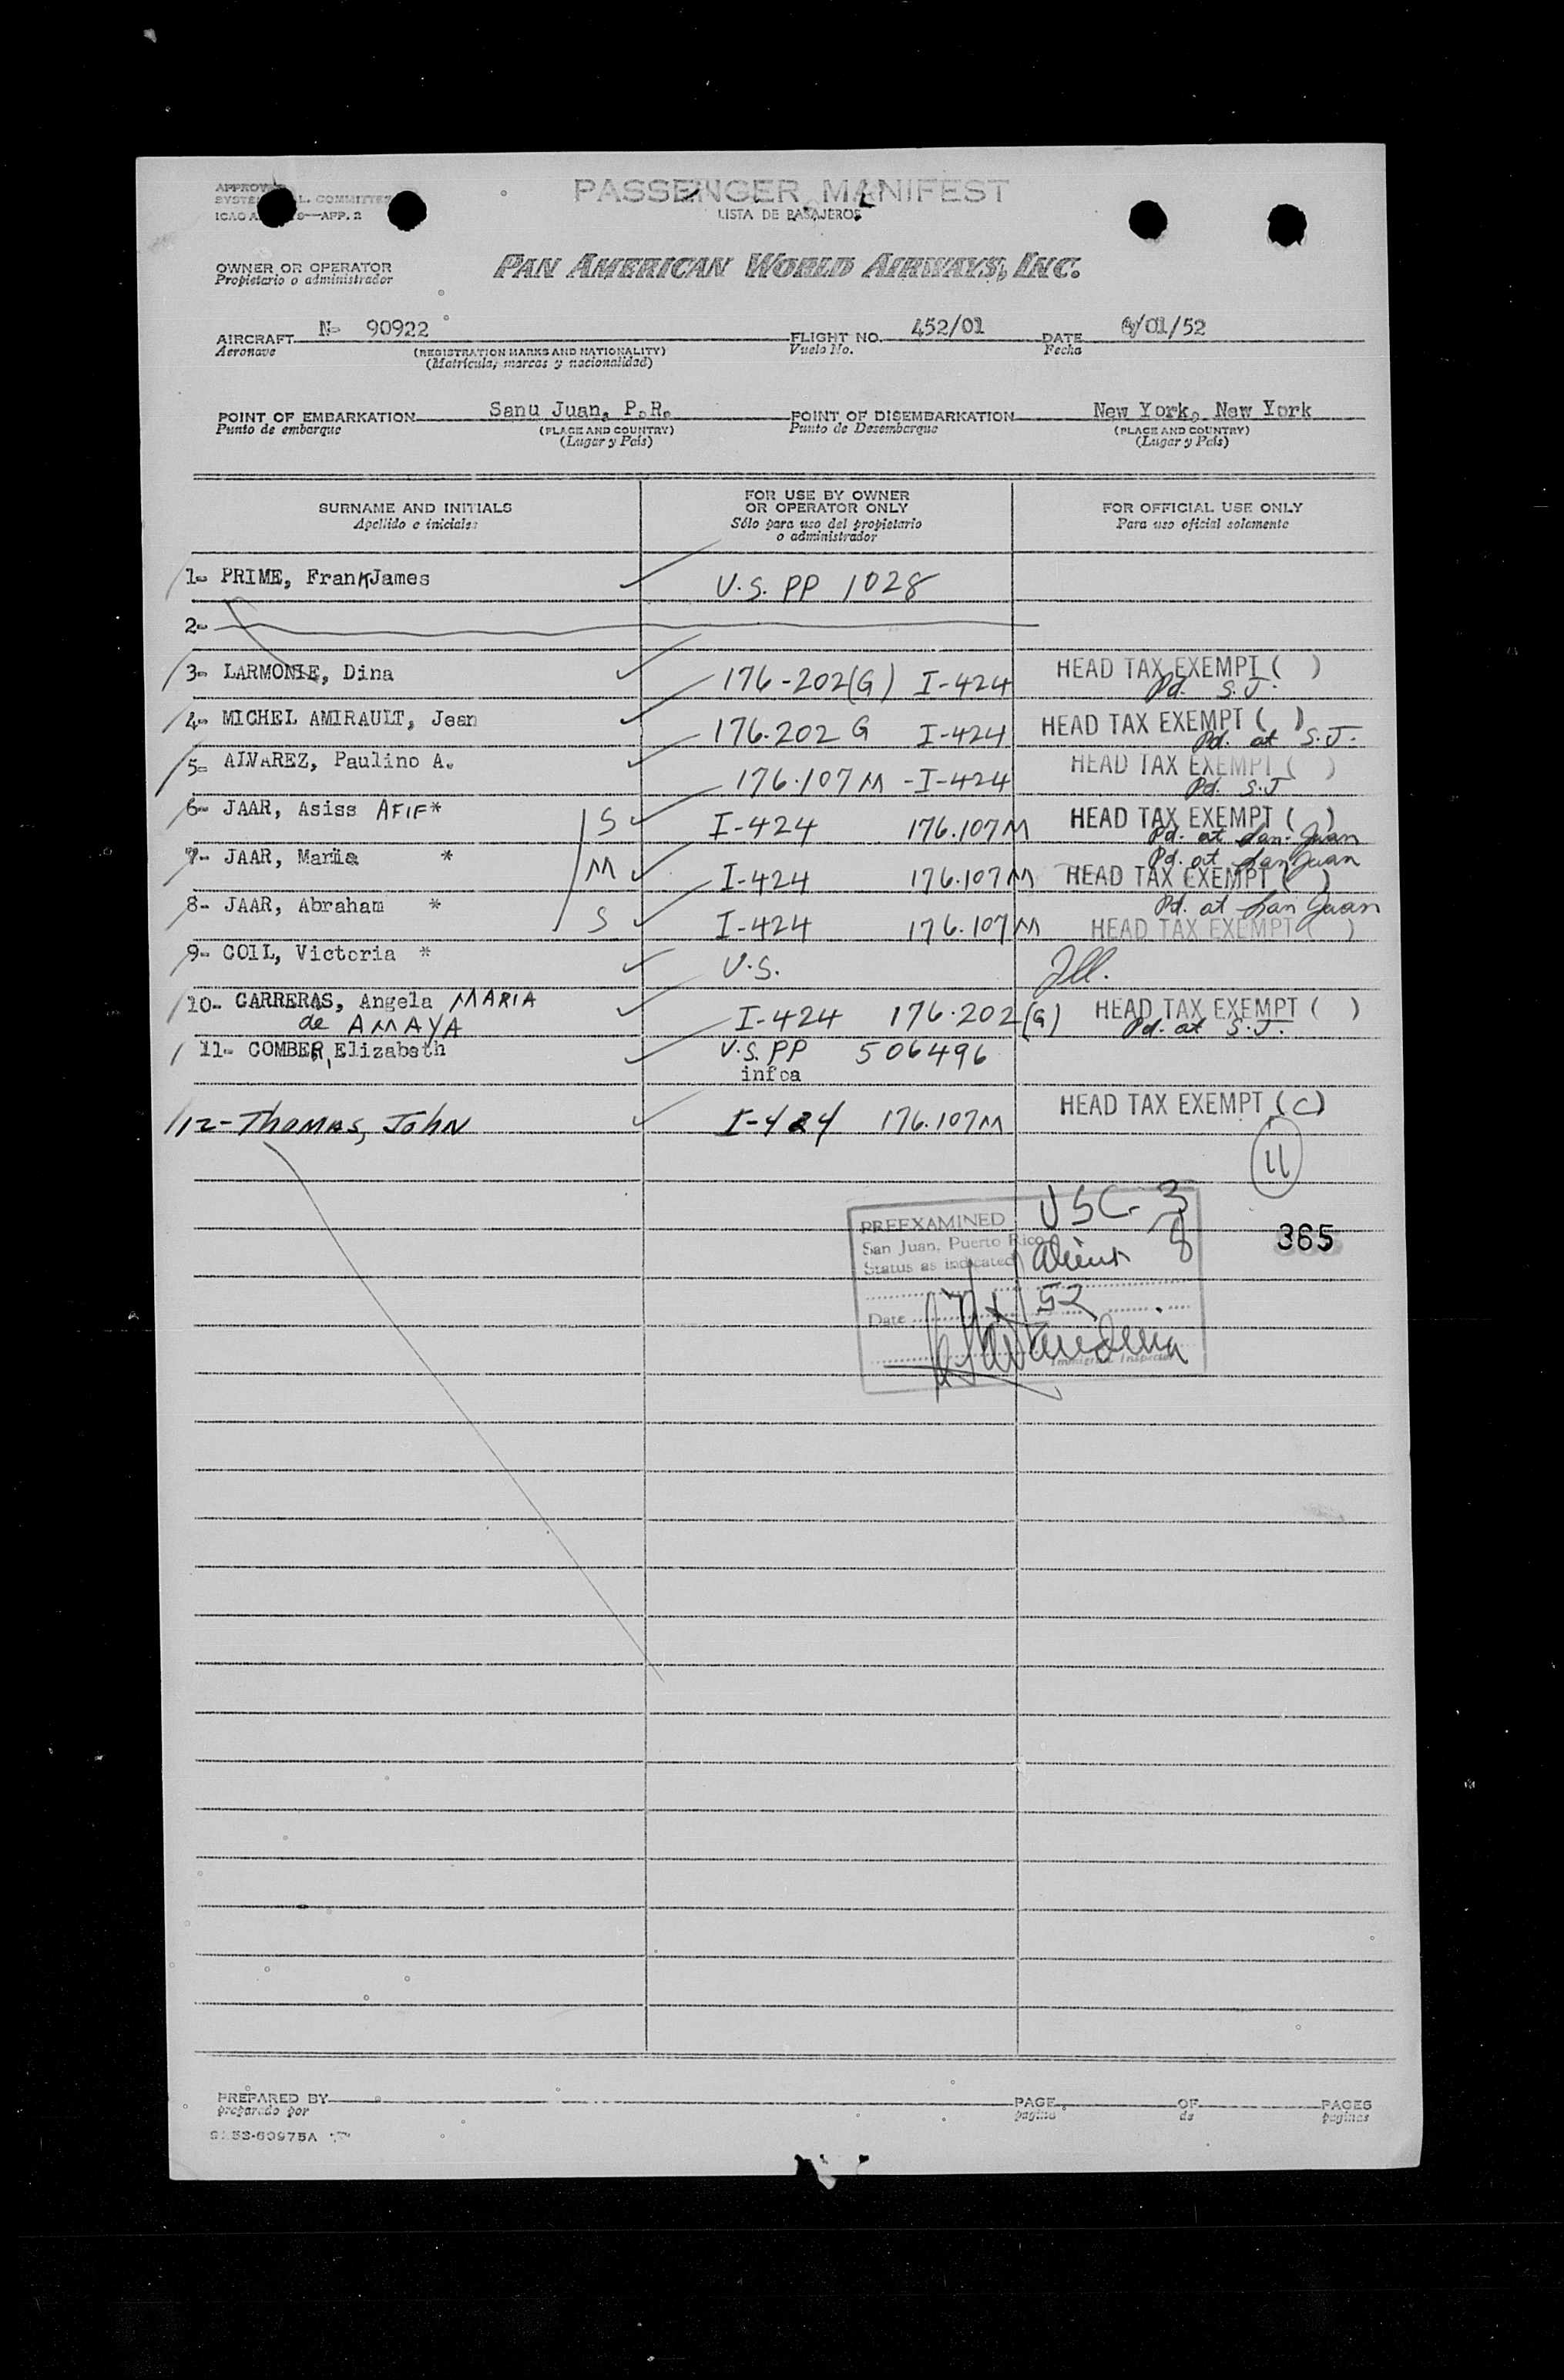 PASSENGER MANIFEST
LISTA DE PASAJEROS
PAN AMERICAN WORLD AIRWAYS, INC.
OWNER OR OPERATOR
Propietario o administrador
AIRCRAFT N- 90922 FLIGHT NO. 452/01 DATE /01/52
Aeronave (REGISTRATION MARKS AND NATIONALITY) Vuelo No. Fecha
(Matrícula, marcas y nacionalidad)
POINT OF EMBARKATION Sanu Juan, P.R. POINT OF DISEMBARKATION New York, New York
Punto de embarque (PLACE AND COUNTRY) Punto de Desembarque (PLACE AND COUNTRY)
(Lugar y País) (Lugar y País)
SURNAME AND INITIALS FOR USE BY OWNER OR OPERATOR ONLY FOR OFFICIAL USE ONLY
Apellido e iniciales Sólo para uso del propietario o administrador Para uso oficial solamente
1- PRIME, Frank James V.S. PP 1028
2-
3- LARMONIE, Dina 176-202(G) I-424 HEAD TAX EXEMPT ( )
Pd. S.J.
4- MICHEL AMIRAULT, Jean 176.202 G I-424 HEAD TAX EXEMPT ( )
Pd. at S.J.
5- ALVAREZ, Paulino A. 176.107M -I-424 HEAD TAX EXEMPT ( )
Pd. S.J
6- JAAR, Asiss AFIF* S I-424 176.107M HEAD TAX EXEMPT ( )
Pd. at San Juan
7- JAAR, Maria * M I-424 176.107M Pd. at San Juan
HEAD TAX EXEMPT ( )
8- JAAR, Abraham * S I-424 176.107M Pd. at San Juan
HEAD TAX EXEMPT ( )
9- COIL, Victoria * U.S.
10- CARRERAS, Angela MARIA I-424 176.202(G) HEAD TAX EXEMPT ( )
de AMAYA Pd. at S.J.
11- COMBER, Elizabeth V.S. PP 506496
infoa
12- Thomas, John I-424 176.107M HEAD TAX EXEMPT (C)
11
PREEXAMINED USC- 3
San Juan, Puerto Rico
Status as indicated Aliens 8
365
Date 52
Immigrant Inspector
PREPARED BY PAGE OF PAGES
preparado por pagina de paginas